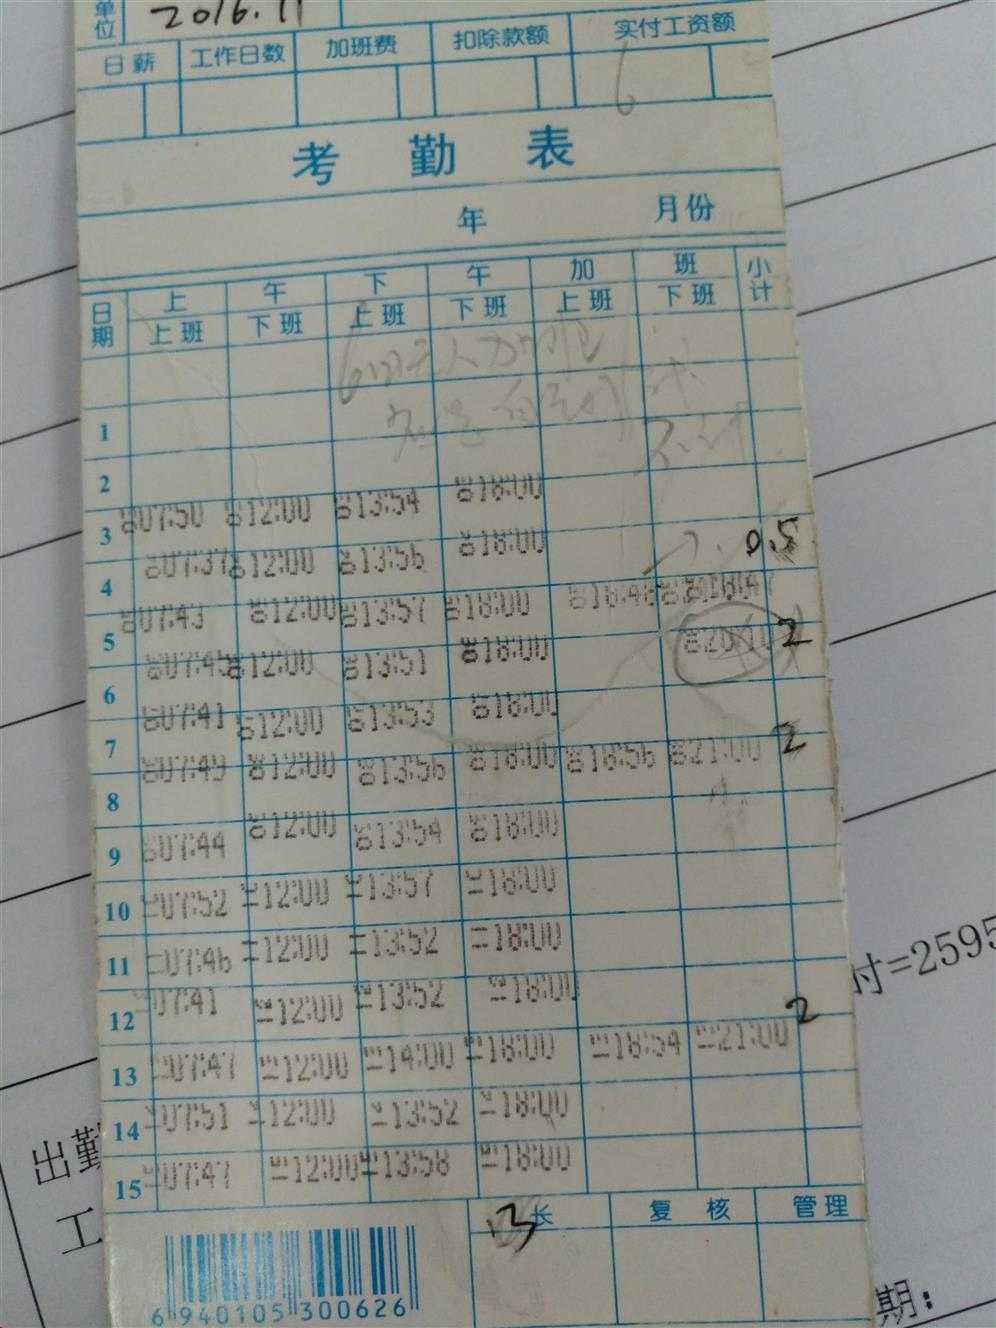 单位 2016.11
日薪 工作日数 加班费 扣除款额 实付工资额
6
考勤表
年 月份
日期 上午 下午 加班 小计
上班 下班 上班 下班 上班 下班
1
2
3 07:50 12:00 13:54 18:00
4 07:37 12:00 13:56 18:00 0.5
5 07:43 12:00 13:57 18:00 18:46 18:47
6 07:45 12:00 13:51 18:00 2
7 07:41 12:00 13:53 18:00
8 07:49 12:00 13:56 18:00 18:56 21:00 2
9 07:44 12:00 13:54 18:00
10 07:52 12:00 13:57 18:00
11 07:46 12:00 13:52 18:00
12 07:41 12:00 13:52 18:00
13 07:47 12:00 14:00 18:00 18:54 21:00 2
14 07:51 12:00 13:52 18:00
15 07:47 12:00 13:58 18:00
13 长 复核 管理
6 940105 300626
付=2595
出勤
工
期: